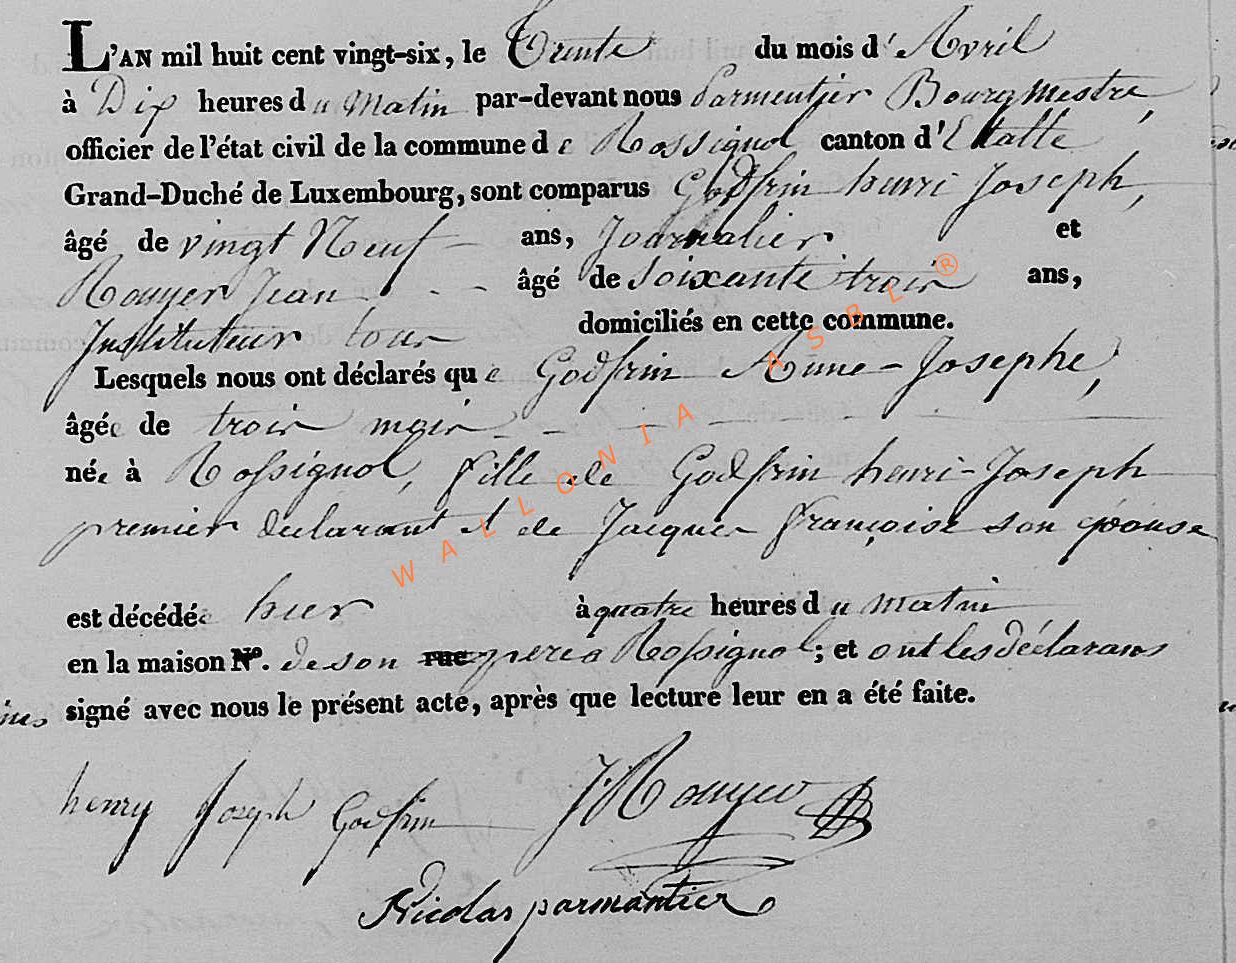 L'AN mil huit cent vingt-six, le Trente du mois d' Avril
à Dix heures du Matin par-devant nous Parmentier Bourgmestre,
officier de l'état civil de la commune de Rossignol canton d'Etalle
Grand-Duché de Luxembourg, sont comparus Godfrin henri Joseph,
âgé de vingt Neuf ans, Journalier et
Rouyer Jean âgé de Soixante trois ans,
Instituteur tous domiciliés en cette commune.
Lesquels nous ont déclarés que Godfrin Anne-Josephe,
âgée de trois mois
née à Rossignol, fille de Godfrin henri-Joseph
premier declarant et de Jacques françoise son épouse
est décédée hier à quatre heures du matin
en la maison Nº. de son rue pere a Rossignol; et ont les déclarans
signé avec nous le présent acte, après que lecture leur en a été faite.
henry Joseph Godfrin J Rouyer
Nicolas parmantier
WALLONIA ASBL ®